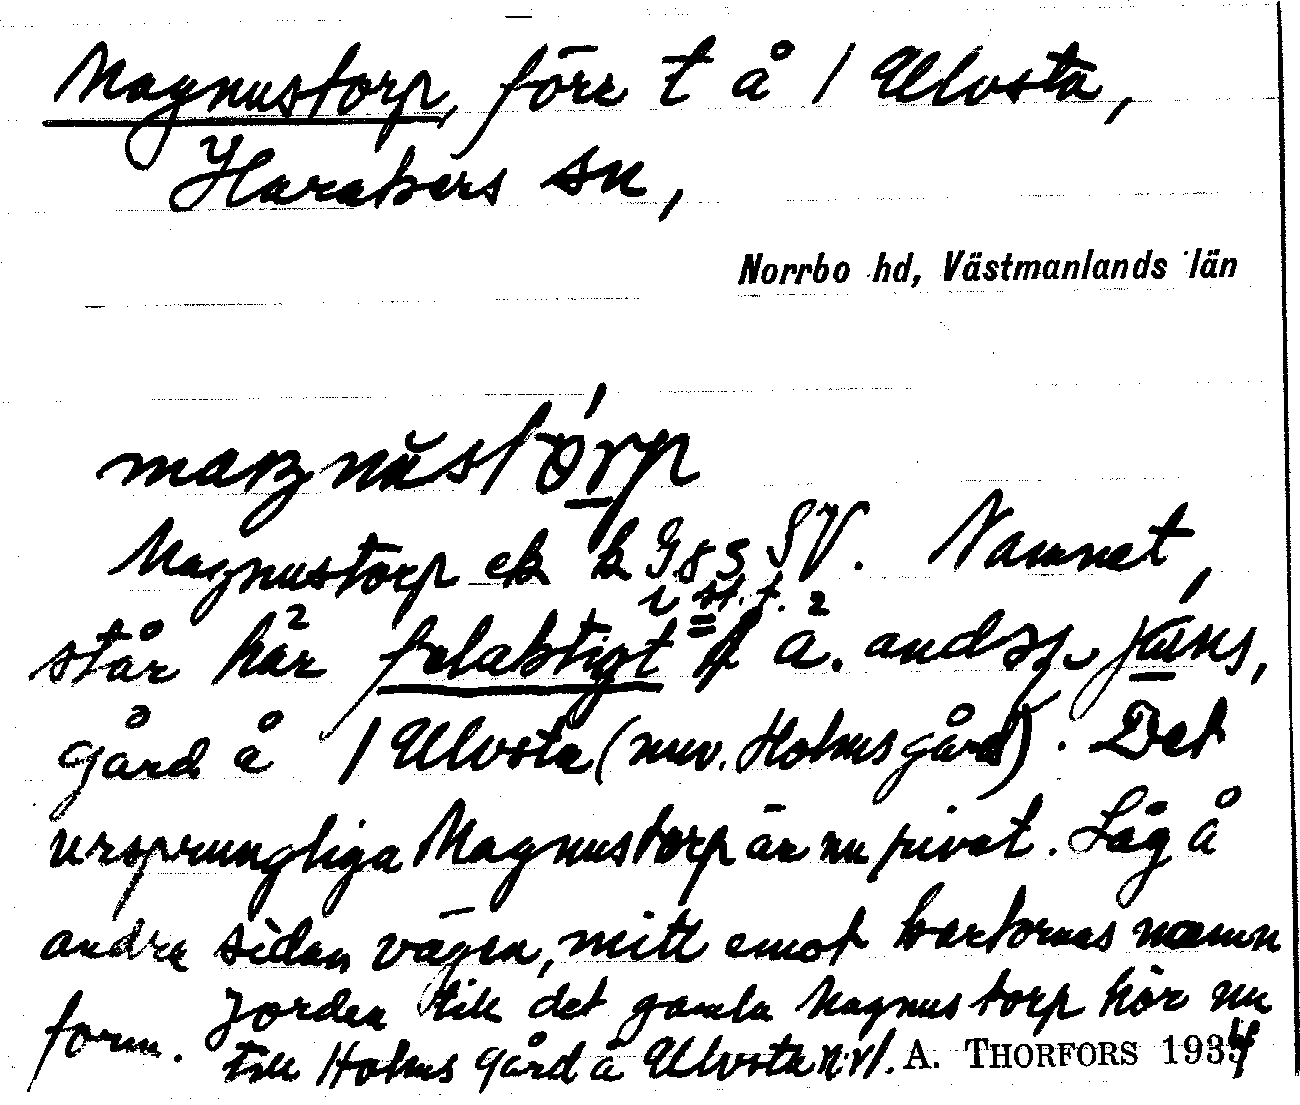 Magnustorp, förr t å 1 Ulvsta,
Harakers sn,
Norrbo hd, Västmanlands län
magnustorp
Magnustorp ek k G83 SV. Namnet
i st. f.
står här felaktigt å. Jäns,
gård å 1 Ulvsta (nuv. Holmsgård). Det
ursprungliga Magnustorp är nu rivet. Låg å
andra sidan vägen, mitt emot kartornas namn
form. Jorden till det gamla Magnustorp hör nu
till Holms gård å Ulvsta nr 1. A. THORFORS 1934